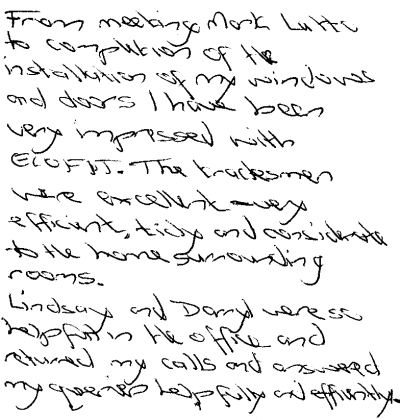 From meeting Mark Lutto
to completion of the
installation of my windows
and doors I have been
very impressed with
ECOFIT. The tradesmen
were excellent - very
efficient, tidy and considerate
to the home surrounding
rooms.
Lindsay and Darryl were so
helpful in the office and
returned my calls and answered
my queries helpfully and efficiently.